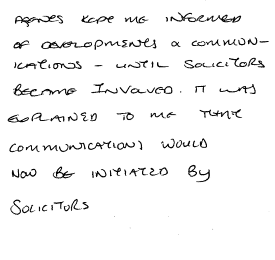 AGENTS KEPT ME INFORMED
OF DEVELOPMENTS & COMMUN-
ICATIONS - UNTIL SOLICITORS
BECAME INVOLVED. IT WAS
EXPLAINED TO ME THAT
COMMUNICATIONS WOULD
NOW BE INITIATED BY
SOLICITORS